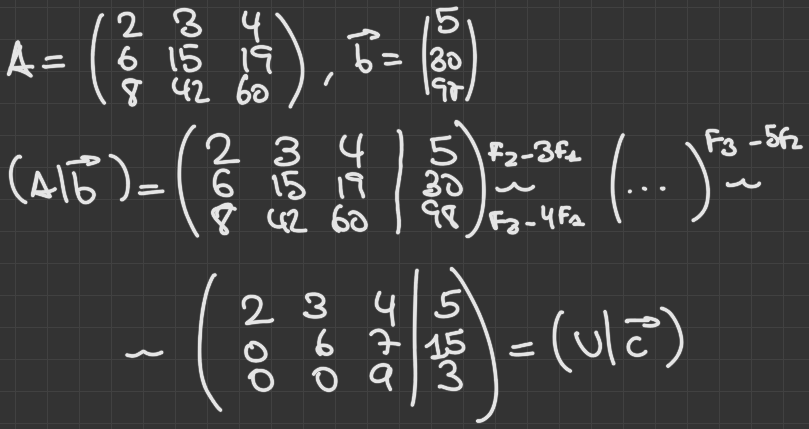 A = ( 2 3 4
6 15 19
8 42 60 ) , b⃗ = ( 5
30
98 )
(A|b⃗) = ( 2 3 4 | 5
6 15 19 | 30
8 42 60 | 98 ) F₂-3F₁ ~ F₃-4F₁ (...) F₃-5F₂ ~
~ ( 2 3 4 | 5
0 6 7 | 15
0 0 9 | 3 ) = (U|c⃗)